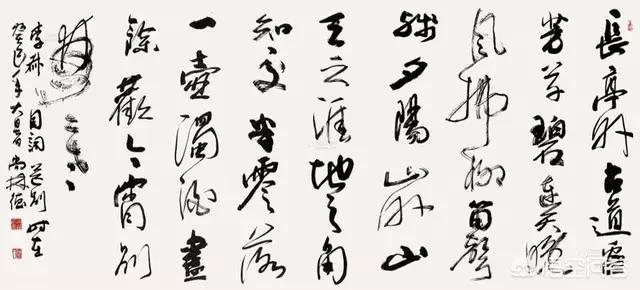 長亭外古道邊
芳草碧連天晚
風拂柳笛聲
殘夕陽山外山
天之涯地之角
知交半零落
一壺濁酒盡
餘歡今宵別
夢寒
李叔同詞送别时在
癸巳年大暑
悟空问答